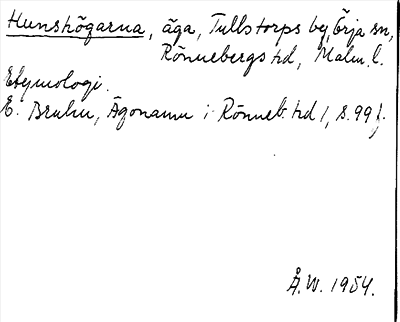 Hunshögarna, äga, Tullstorps by, Örja sn,
Rönnebergs hd, Malm. l.
Etymologi.
E. Bruhn, Ägonamn i Rönneb. hd 1, s. 99 f.
Å.W. 1954.